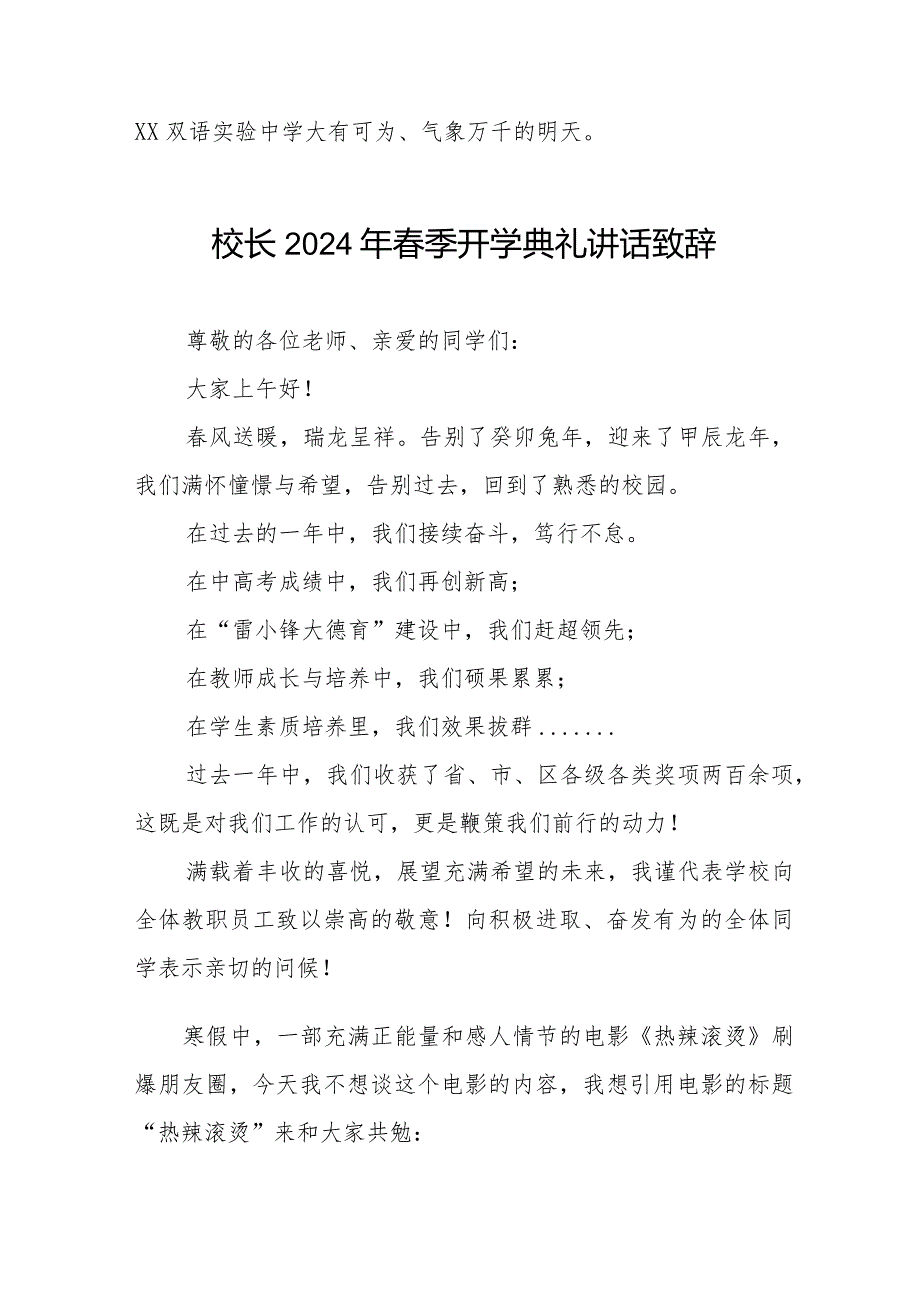 XX 双语实验中学大有可为、气象万千的明天。
校长 2024 年春季开学典礼讲话致辞
尊敬的各位老师、亲爱的同学们：
大家上午好！
春风送暖，瑞龙呈祥。告别了癸卯兔年，迎来了甲辰龙年，
我们满怀憧憬与希望，告别过去，回到了熟悉的校园。
在过去的一年中，我们接续奋斗，笃行不怠。
在中高考成绩中，我们再创新高；
在“雷小锋大德育”建设中，我们赶超领先；
在教师成长与培养中，我们硕果累累；
在学生素质培养里，我们效果拔群.......
过去一年中，我们收获了省、市、区各级各类奖项两百余项，
这既是对我们工作的认可，更是鞭策我们前行的动力！
满载着丰收的喜悦，展望充满希望的未来，我谨代表学校向
全体教职员工致以崇高的敬意！向积极进取、奋发有为的全体同
学表示亲切的问候！
寒假中，一部充满正能量和感人情节的电影《热辣滚烫》刷
爆朋友圈，今天我不想谈这个电影的内容，我想引用电影的标题
“热辣滚烫”来和大家共勉：